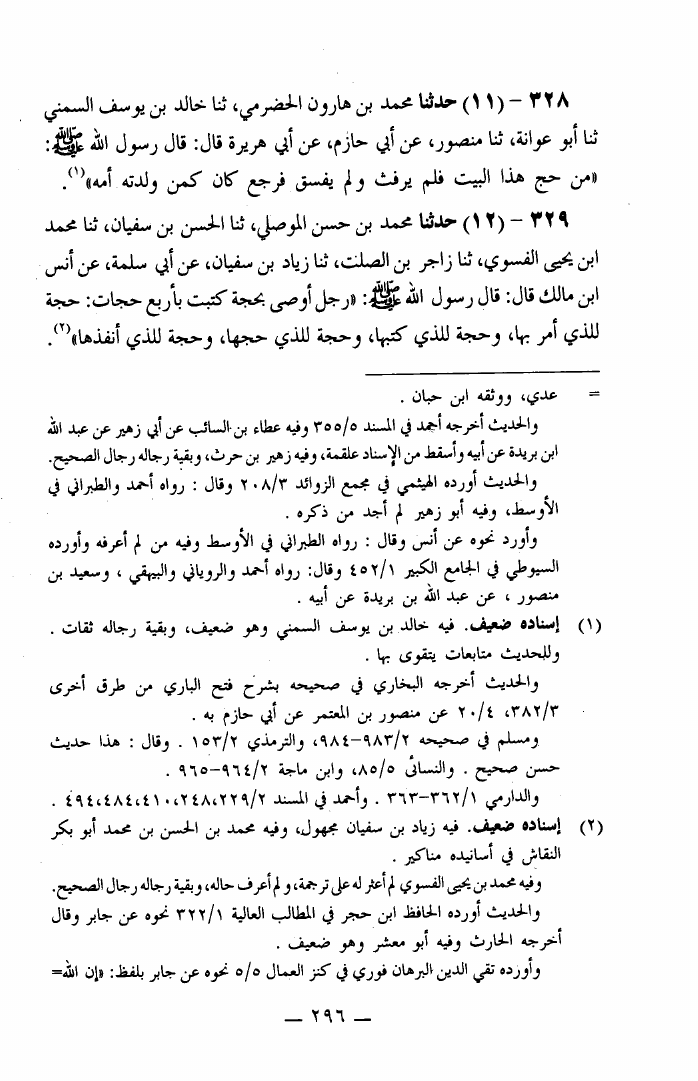 ٣٢٨ – (١١) حدثنا محمد بن هارون الحضرمي، ثنا خالد بن يوسف السمني
ثنا أبو عوانة، ثنا منصور، عن أبي حازم، عن أبي هريرة قال: قال رسول الله ﷺ:
«من حج هذا البيت فلم يرفث ولم يفسق فرجع كان كمن ولدته أمه»(١).
٣٢٩ – (١٢) حدثنا محمد بن حسن الموصلي، ثنا الحسن بن سفيان، ثنا محمد
ابن يحيى الفسوي، ثنا زاجر بن الصلت، ثنا زياد بن سفيان، عن أبي سلمة، عن أنس
ابن مالك قال: قال رسول الله ﷺ: «رجل أوصى بحجة كتبت بأربع حجات: حجة
للذي أمر بها، وحجة للذي كتبها، وحجة للذي حجها، وحجة للذي أنفذها»(٢).
= عدي، ووثقه ابن حبان .
والحديث أخرجه أحمد في المسند ٣٥٥/٥ وفيه عطاء بن السائب عن أبي زهير عن عبد الله
ابن بريدة عن أبيه وأسقط من الإسناد علقمة، وفيه زهير بن حرث، وبقية رجاله رجال الصحيح.
والحديث أورده الهيثمي في مجمع الزوائد ٢٠٨/٣ وقال : رواه أحمد والطبراني في
الأوسط، وفيه أبو زهير لم أجد من ذكره .
وأورد نحوه عن أنس وقال : رواه الطبراني في الأوسط وفيه من لم أعرفه وأورده
السيوطي في الجامع الكبير ٤٥٢/١ وقال: رواه أحمد والروياني والبيهقي ، وسعيد بن
منصور ، عن عبد الله بن بريدة عن أبيه .
(١) إسناده ضعيف. فيه خالد بن يوسف السمني وهو ضعيف، وبقية رجاله ثقات .
وللحديث متابعات يتقوى بها .
والحديث أخرجه البخاري في صحيحه بشرح فتح الباري من طرق أخرى
٣٨٢/٣، ٢٠/٤ عن منصور بن المعتمر عن أبي حازم به .
ومسلم في صحيحه ٩٨٣/٢–٩٨٤، والترمذي ١٥٣/٢ . وقال : هذا حديث
حسن صحيح . والنسائى ٨٥/٥، وابن ماجة ٩٦٤/٢–٩٦٥ .
والدارمي ٣٦٢/١–٣٦٣ . وأحمد في المسند ٢٢٩/٢، ٢٤٨، ٤١٠، ٤٨٤، ٤٩٤ .
(٢) إسناده ضعيف. فيه زياد بن سفيان مجهول، وفيه محمد بن الحسن بن محمد أبو بكر
النقاش في أسانيده مناكير .
وفيه محمد بن يحيى الفسوي لم أعثر له على ترجمة، ولم أعرف حاله، وبقية رجاله رجال الصحيح.
والحديث أورده الحافظ ابن حجر في المطالب العالية ٣٢٢/١ نحوه عن جابر وقال
أخرجه الحارث وفيه أبو معشر وهو ضعيف .
وأورده تقي الدين البرهان فوري في كنز العمال ٥/٥ نحوه عن جابر بلفظ: «إن الله=
— ٢٩٦ —